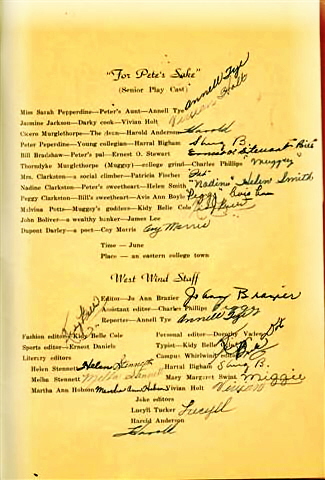 "For Pete's Sake"
(Senior Play Cast)
Annell Tye
Vivian Holt
Miss Sarah Pepperdine—Peter's Aunt—Annell Tye
Jasmine Jackson—Darky cook—Vivian Holt
Cicero Murglethorpe—The dean—Harold Anderson Harold
Peter Peperdine—Young collegian—Harral Bigham Slung B.
Bill Bradshaw—Peter's pal—Ernest O. Stewart Ernest Stewart "Bill"
Thorndyke Murglethorpe (Muggsy)—college grind—Charles Phillips "Muggsy"
Mrs. Clarkston—a social climber—Patricia Fischer "Pat"
Nadine Clarkston—Peter's sweetheart—Helen Smith "Nadine" Helen Smith
Peggy Clarkston—Bill's sweetheart—Avis Ann Boyle Peggy
Malvina Potts—Muggsy's goddess—Kidy Belle Cole
John Boliver—a wealthy banker—James Lee
Dupont Darley—a poet—Coy Morris Coy Morris
Time — June
Place — an eastern college town
West Wind Staff
Editor—Jo Ann Brazier
Assistant editor—Charles Phillips
Reporter—Annell Tye Annell Tye
Fashion editor—Kidy Belle Cole
Personal editor—Dorothy Valen
Sports editor—Ernest Daniels
Typist—Kidy Belle
Literary editors
Campus Whirlwind editors
Helen Stennett Helen Stennett
Harral Bigham Slung B.
Melba Stennett Melba Stennett
Mary Margaret Swint Miggie
Martha Ann Hobson Martha Ann Hobson
Vivian Holt Vivian
Joke editors
Lucyll Tucker Lucyll
Harold Anderson
Harold